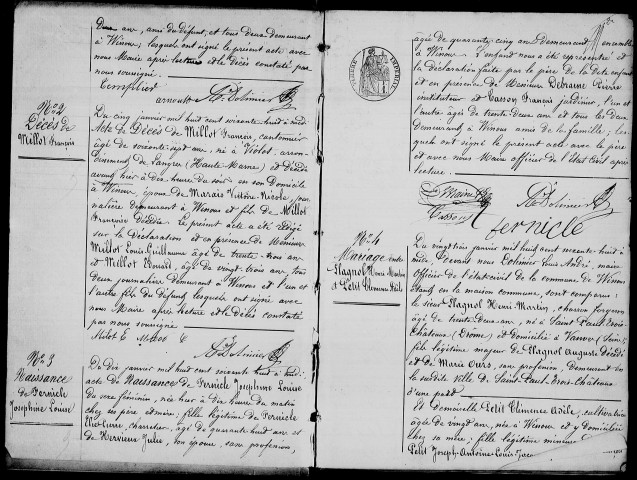 Deux ans, ami du défunt, et tous deux Demeurant
à Winou, lesquels ont signé le présent acte avec
nous Maire après lecture et le décès constaté par
nous soussigné.
Templier
arnoult
N°2
Décès de
Millot François
Du cinq janvier mil huit cent soixante huit à midi
Acte de Décès de Millot François, cantonnier
âgé de soixante sept ans, né à Violot, arron-
dissement de Langres (Haute Marne) et Décédé
avant hier à dix heures du soir en son Domicile
à Winou, époux de Marais Victoire Nicole, jour-
nalière demeurant à Winou et fils de Millot
François Décédé. Le présent acte a été rédigé
sur la Déclaration et en présence de Messieurs
Millot Louis Guillaume âgé de trente-trois ans
et Millot Edouard, âgé de vingt-trois ans, tous
deux journaliers demeurant à Winou et l'un et
l'autre fils du Défunt, lesquels ont signé avec
nous Maire après lecture et le Décès constaté
par nous soussigné
Milot E Millot
N°3
Naissance
de Fernicle
Joséphine Louise
Du Dix janvier mil huit cent soixante huit à midi:
acte de Naissance de Fernicle Joséphine Louise
du sexe féminin, née hier à dix heures du matin
chez ses père et mère; fille légitime de Fernicle
Pierre, charretier, âgé de quarante huit ans et
de Hervieux Julie, son épouse, sans profession,
âgée de quarante-cinq ans Demeurant ensemble
à Winou. L'enfant nous a été présentée et
la déclaration faite par le père de la dite enfant
et en présence de Messieurs Delzaine Pierre
instituteur et Casson François jardinier, l'un et
l'autre âgés de trente-deux ans et tous les deux
Demeurant à Winou amis de la famille; les-
quels ont signé le présent acte avec le père
et avec nous Maire officier de l'Etat civil après
lecture.
fernicle
N°4
Mariage entre
Flagnol Henri Martin
et Petit Clémence Adèle
Du vingt trois janvier mil huit cent soixante-huit à
midi. Devant nous Polinier Louis André, maire
officier de l'état civil de la commune de Winou
étant en la maison commune, sont comparus:
le sieur Flagnol Henri-Martin, charron forgeron
âgé de trente-deux ans, né à Saint Paul-trois-
Châteaux (Drôme) et Domicilié à Vanves (Seine),
fils légitime majeur de Flagnol Auguste Décédé
et de Marie Ours, sans profession, Demeurant en
la susdite ville de Saint-Paul-trois-Châteaux
d'une part
Et demoiselle Petit Clémence Adèle, cultivatrice
âgée de vingt ans, née à Winou et y domiciliée
chez sa mère; fille légitime mineure de
Petit Joseph-Antoine-Louis-